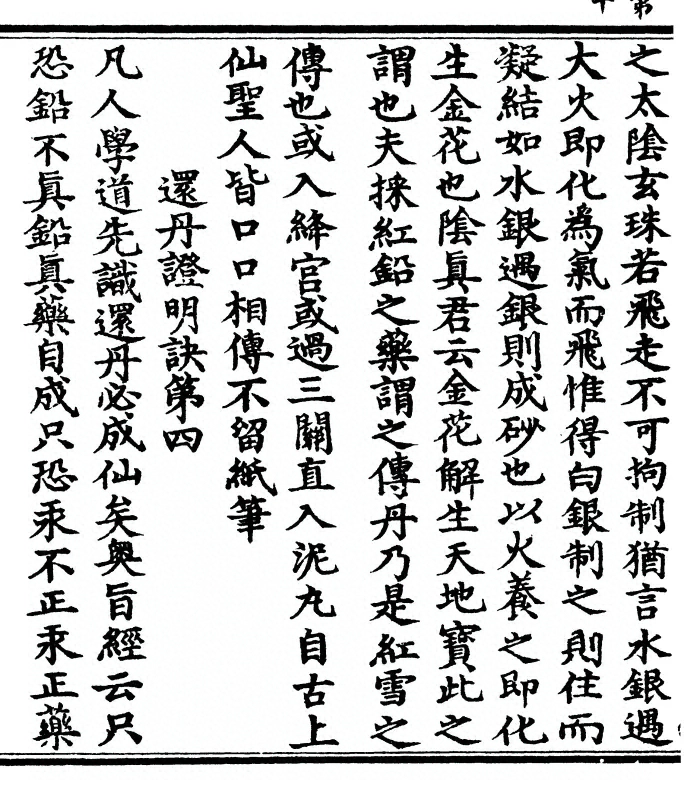 之太陰玄珠若飛走不可拘制猶言水銀遇
大火即化為氣而飛惟得白銀制之則住而
凝結如水銀遇銀則成砂也以火養之即化
生金花也陰真君云金花解生天地寶此之
謂也夫採紅鉛之藥謂之傳丹乃是紅雪之
傳也或入絳宮或過三關直入泥丸自古上
仙聖人皆口口相傳不留紙筆
還丹證明訣第四
凡人學道先識還丹必成仙矣奧旨經云只
恐鉛不眞鉛眞藥自成只恐汞不正汞正藥